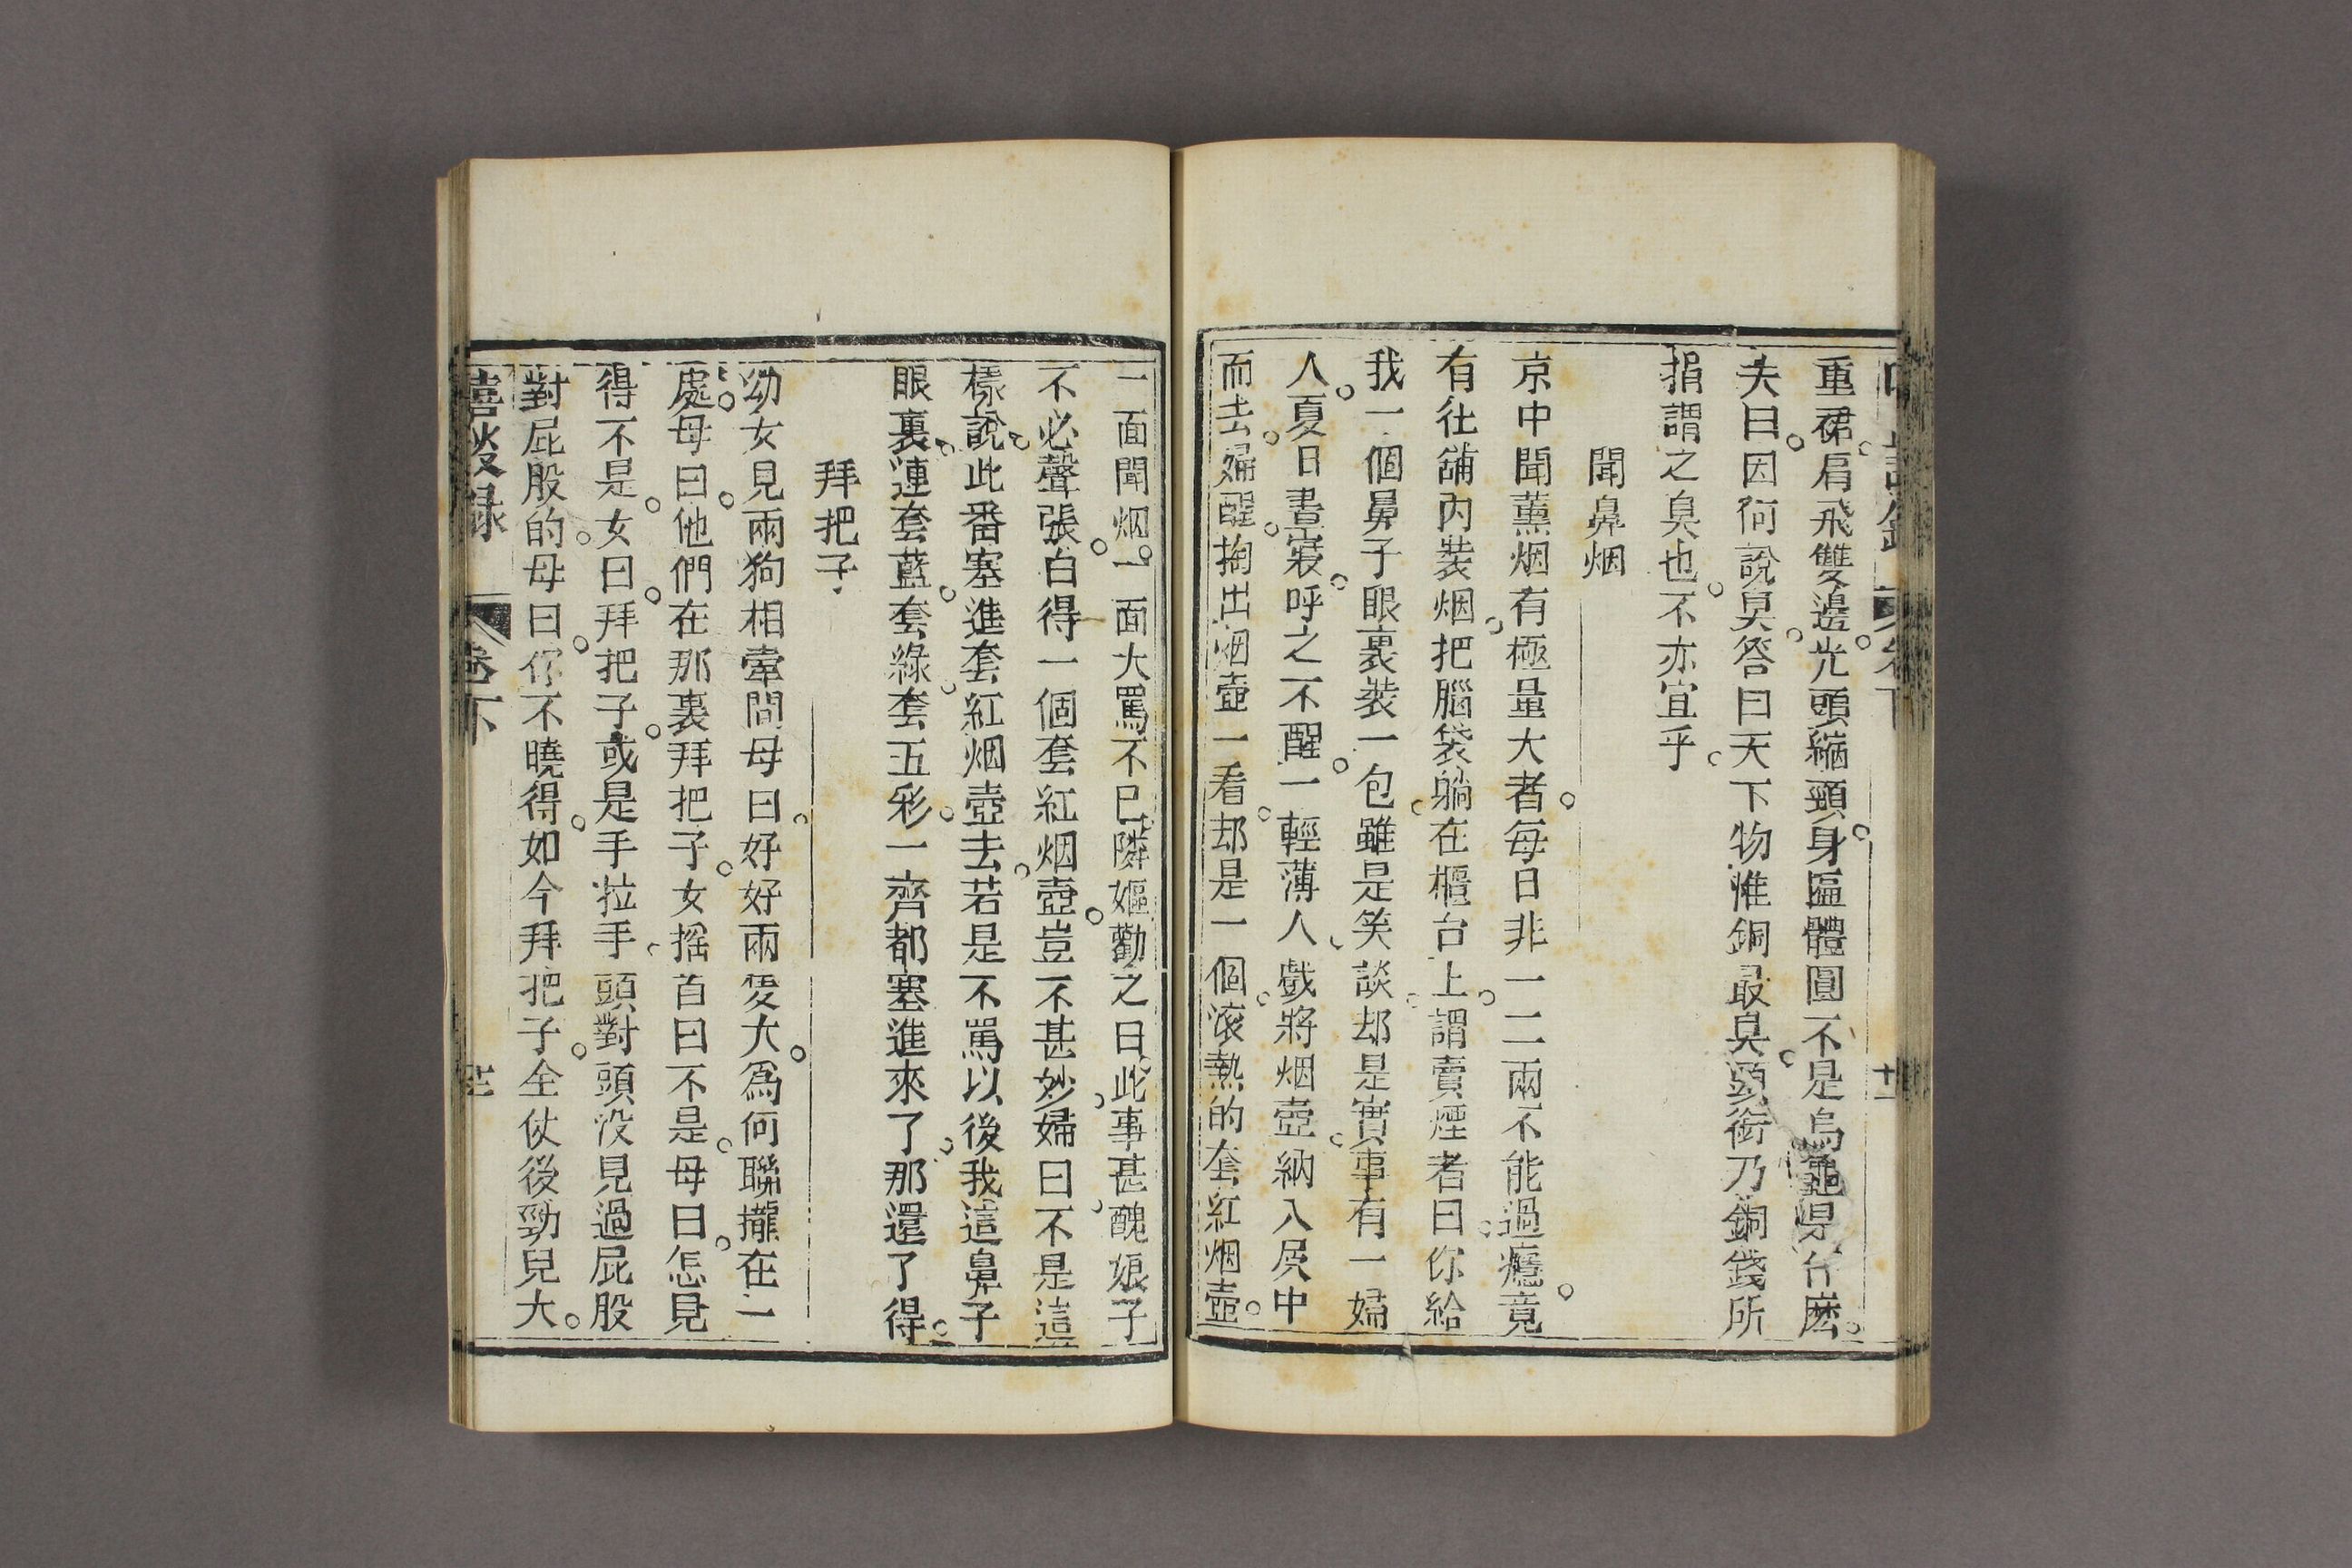 重裙肩飛雙邊光頭縮頸身匾體圓不是烏龜是什麽
夫曰因何說臭答曰天下物惟銅最臭頭銜乃銅錢所
捐謂之臭也不亦宜乎
聞鼻烟
京中聞薰烟有極量大者每日非一二兩不能過癮竟
有往舖内裝烟把腦袋躺在櫃台上謂賣煙者曰你給
我一個鼻子眼裏裝一包雖是笑談却是實事有一婦
人夏日晝寢呼之不醒一輕薄人戲將烟壺納入屄中
而去婦醒掏出烟壺一看却是一個滚熱的套紅烟壺
一面聞烟一面大罵不已隣嫗勸之曰此事甚醜娘子
不必聲張白得一個套紅烟壺豈不甚妙婦曰不是這
樣說此番塞進套紅烟壺去若是不罵以後我這鼻子
眼裏連套藍套綠套五彩一齊都塞進來了那還了得
拜把子
幼女見兩狗相牽問母曰好好兩隻犬爲何聯攏在一
處母曰他們在那裏拜把子女摇首曰不是母曰怎見
得不是女曰拜把子或是手拉手頭對頭没見過屁股
對屁股的母曰你不曉得如今拜把子全仗後勁兒大
嘻談録 卷下